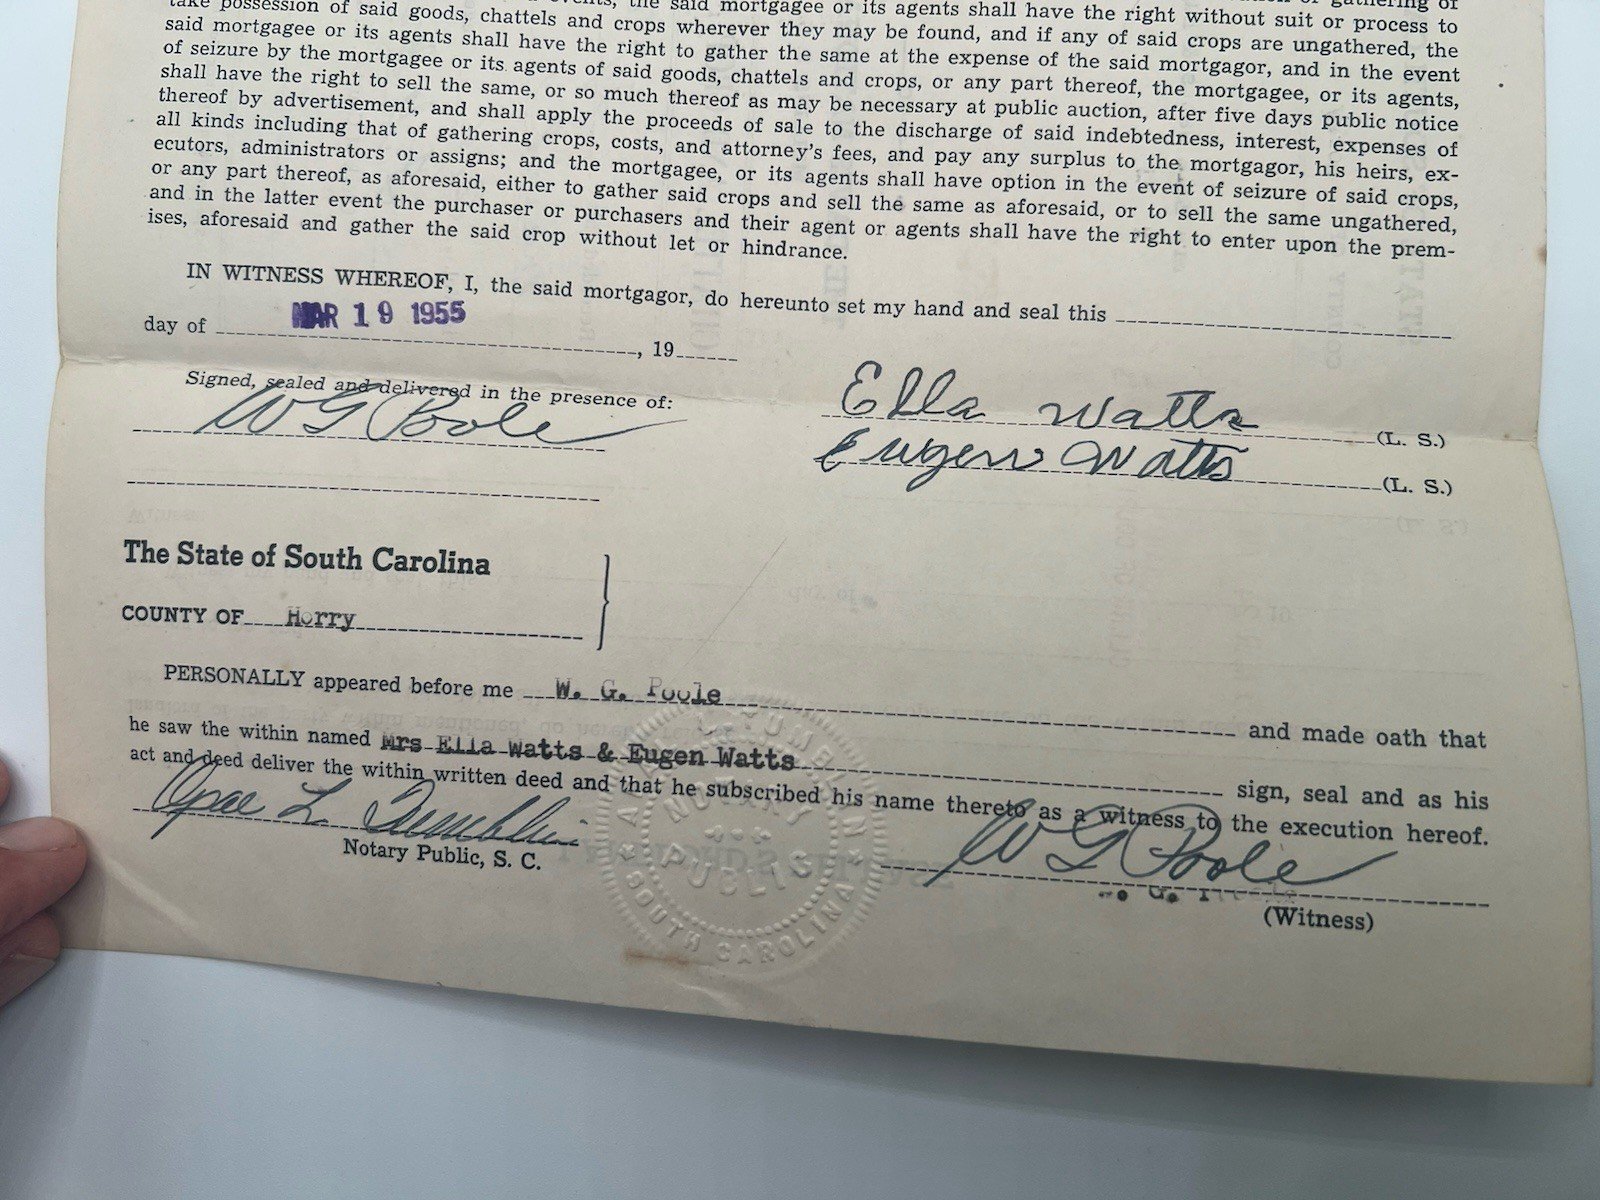 take possession of said goods, chattels and crops wherever they may be found, and if any of said crops are ungathered, the
said mortgagee or its agents shall have the right to gather the same at the expense of the said mortgagor, and in the event
of seizure by the mortgagee or its agents of said goods, chattels and crops, or any part thereof, the mortgagee, or its agents,
shall have the right to sell the same, or so much thereof as may be necessary at public auction, after five days public notice
thereof by advertisement, and shall apply the proceeds of sale to the discharge of said indebtedness, interest, expenses of
all kinds including that of gathering crops, costs, and attorney's fees, and pay any surplus to the mortgagor, his heirs, ex-
ecutors, administrators or assigns; and the mortgagee, or its agents shall have option in the event of seizure of said crops,
or any part thereof, as aforesaid, either to gather said crops and sell the same as aforesaid, or to sell the same ungathered,
and in the latter event the purchaser or purchasers and their agent or agents shall have the right to enter upon the prem-
ises, aforesaid and gather the said crop without let or hindrance.
IN WITNESS WHEREOF, I, the said mortgagor, do hereunto set my hand and seal this
day of MAR 19 1955, 19
Signed, sealed and delivered in the presence of:
W G Poole
Ella Watts (L. S.)
Eugene Watts (L. S.)
The State of South Carolina
COUNTY OF Horry
PERSONALLY appeared before me W. G. Poole and made oath that
he saw the within named Mrs Ella Watts & Eugen Watts sign, seal and as his
act and deed deliver the within written deed and that he subscribed his name thereto as a witness to the execution hereof.
Notary Public, S. C.
W G Poole
(Witness)
NOTARY
PUBLIC
SOUTH CAROLINA